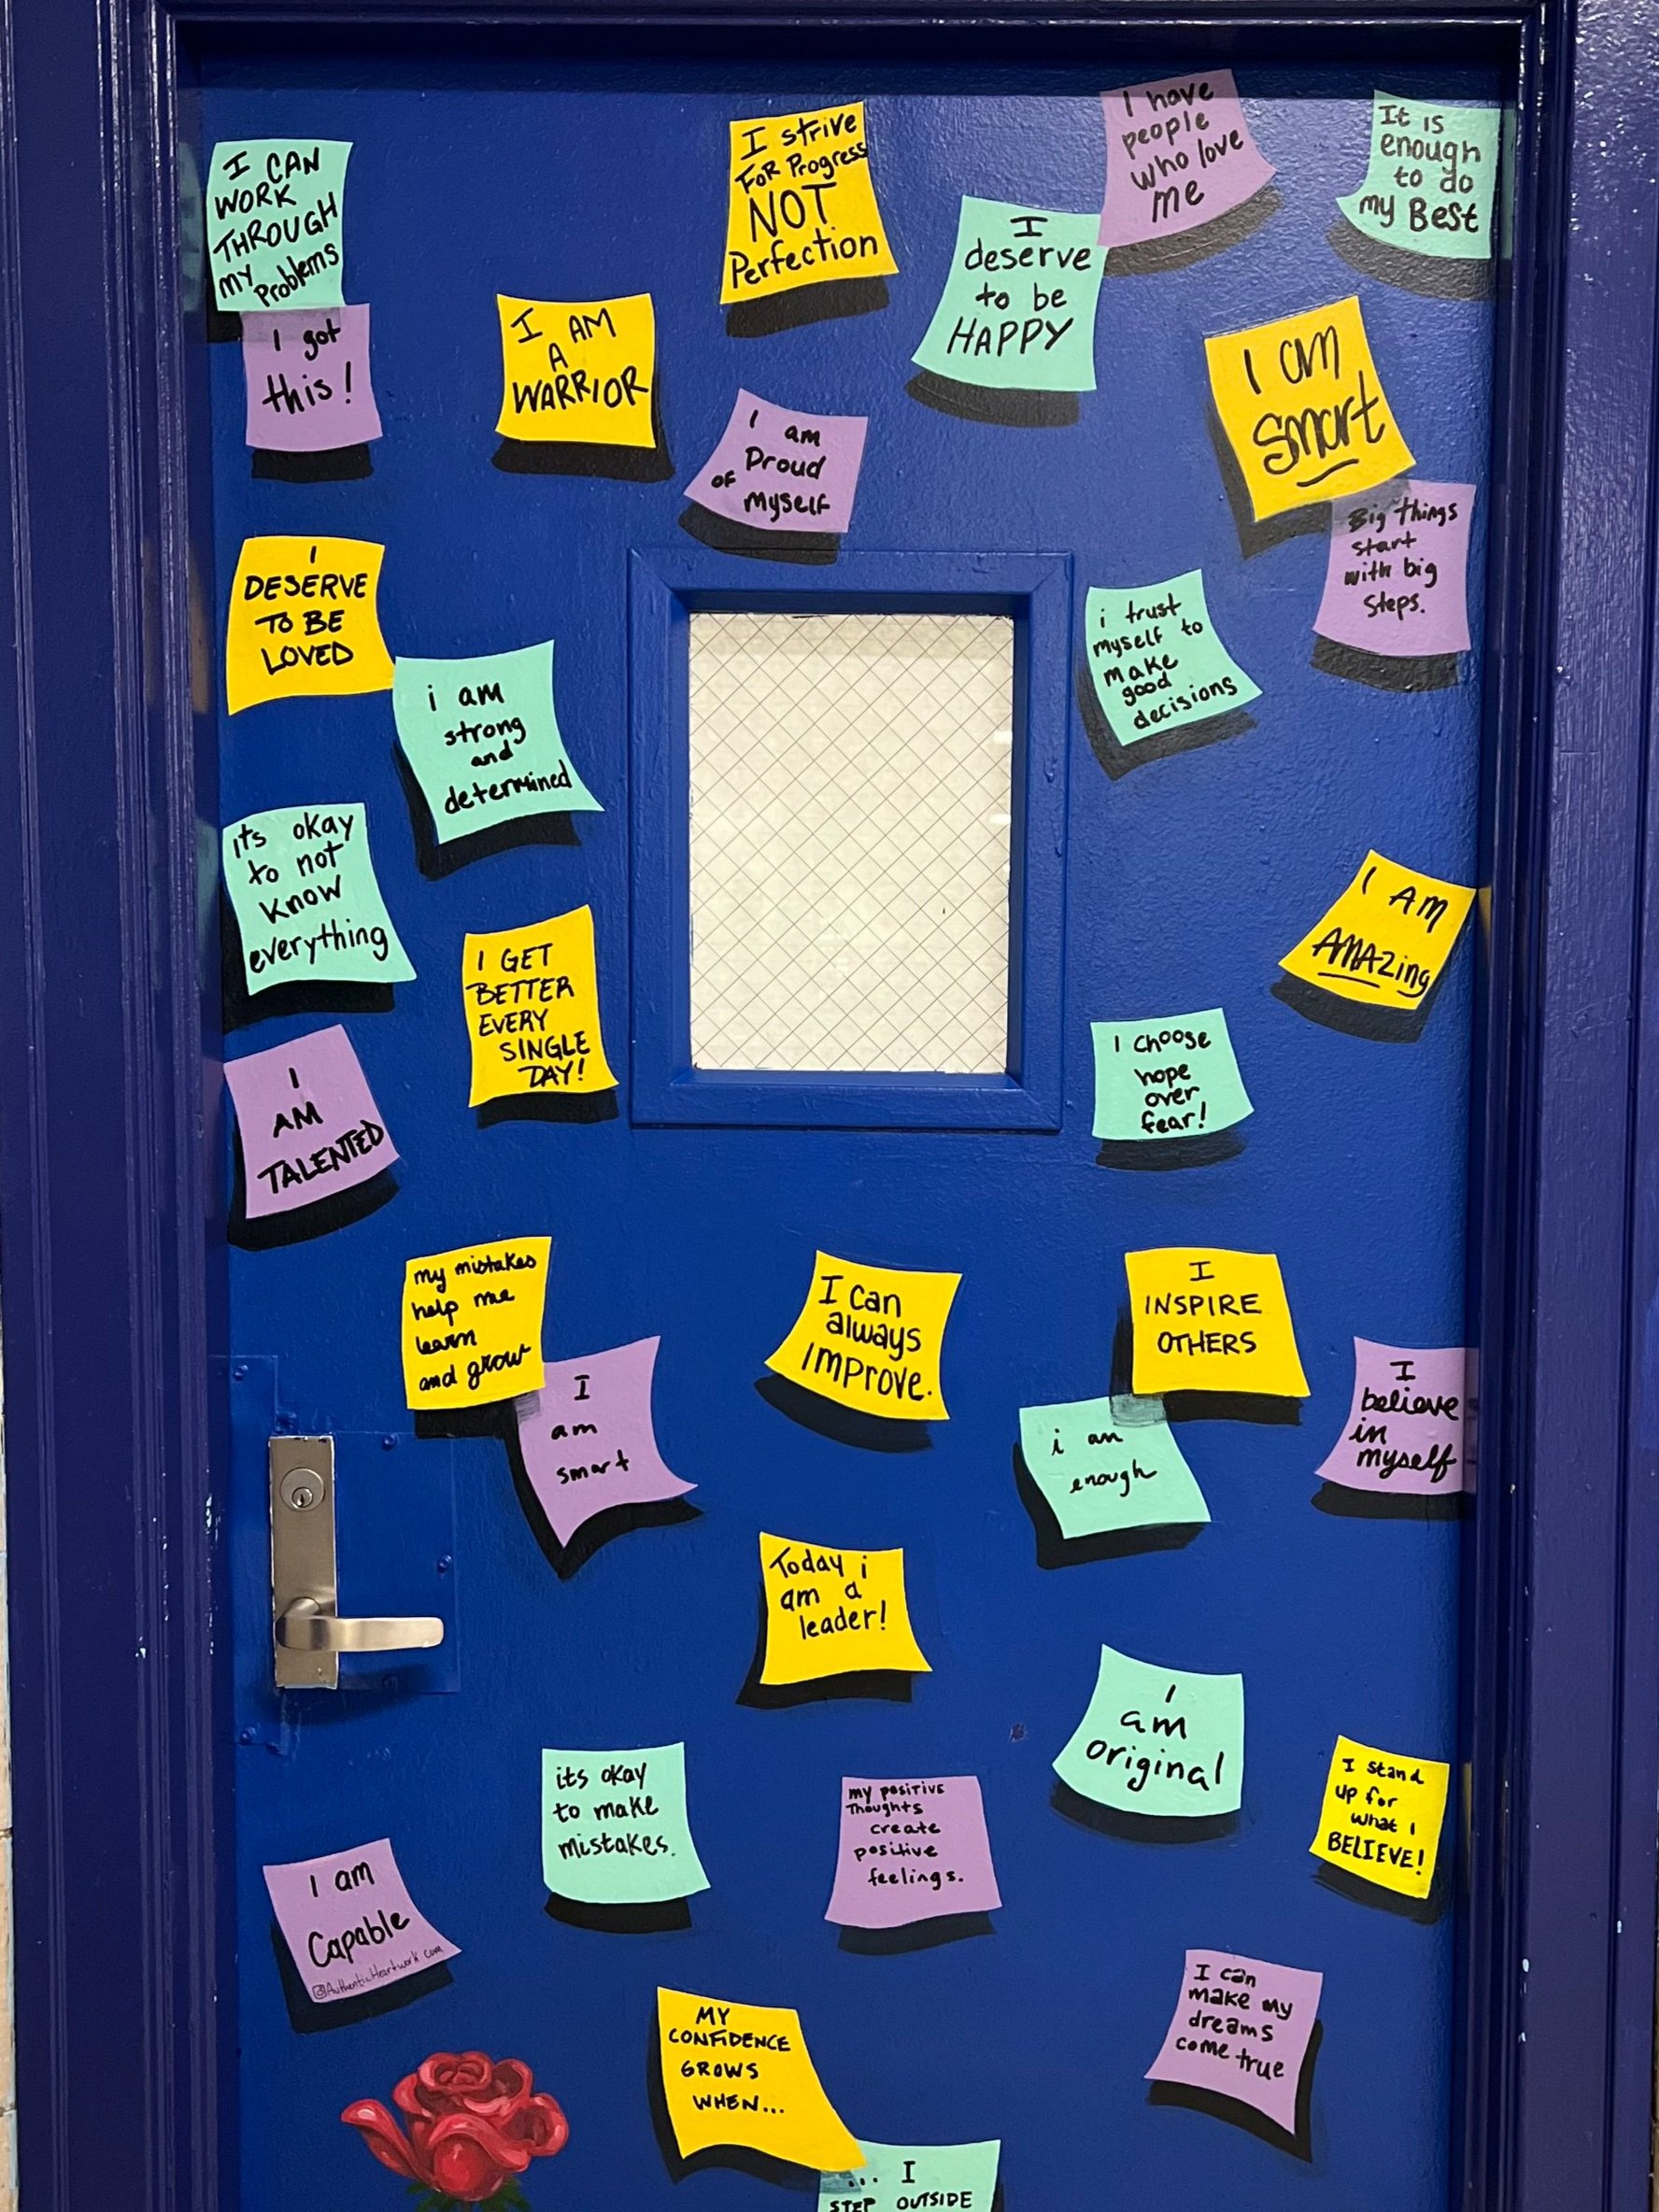 I CAN
WORK
THROUGH
MY
Problems
I got
this!
I AM
A
WARRIOR
I strive
FOR Progress
NOT
Perfection
I
deserve
to be
HAPPY
I have
people
who love
me
It is
enough
to do
my Best
I am
Proud
OF
myself
I am
Smart
Big things
start
with big
Steps.
I
DESERVE
TO BE
LOVED
i am
strong
and
determined
i trust
myself to
make
good
decisions
its okay
to not
know
everything
I GET
BETTER
EVERY
SINGLE
DAY!
I AM
AMAZing
I choose
hope
over
fear!
I
AM
TALENTED
my mistakes
help me
learn
and grow
I
am
smart
I can
always
IMPROVE.
I
INSPIRE
OTHERS
i am
enough
I
believe
in
myself
Today i
am a
leader!
I
am
original
its okay
to make
mistakes.
my positive
Thoughts
create
positive
feelings.
I stand
up for
what I
BELIEVE!
I am
Capable
@AuthenticHeartwork.com
MY
CONFIDENCE
GROWS
WHEN...
... I
STEP OUTSIDE
I can
make my
dreams
come true